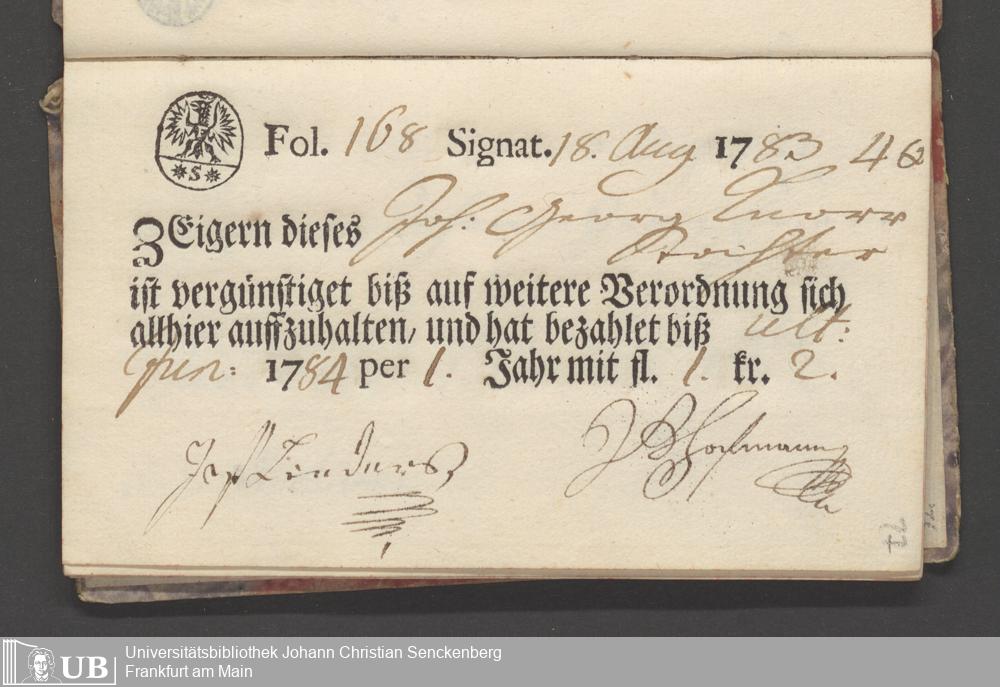 *S*
Fol. 168 Signat. 18. Aug 1783
ZEigern dieses Joh: Georg Knorr
Tochter
ist vergünstiget biß auf weitere Verordnung sich
allhier auffzuhalten, und hat bezahlet biß ult:
Jun: 1784 per 1. Jahr mit fl. 1. kr. 2.
Hofmann
UB
Universitätsbibliothek Johann Christian Senckenberg
Frankfurt am Main